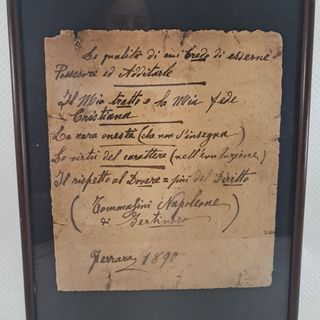 Le qualità di cui Credo di esserne
Possesore ed Additarle
Il Mio tratto e la Mia fede
Cristiana
La rara onestà (che non s'insegna)
La virtù del carattere (nell'
Il rispetto al Dovere = più del Diritto
(Tommasini Napoleone
di Bertinoro)
Ferrara 1890